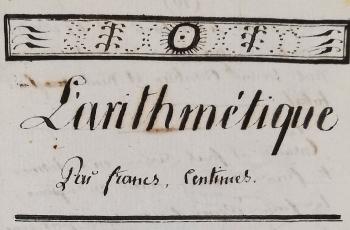 L'arithmétique
Par francs, Centimes.